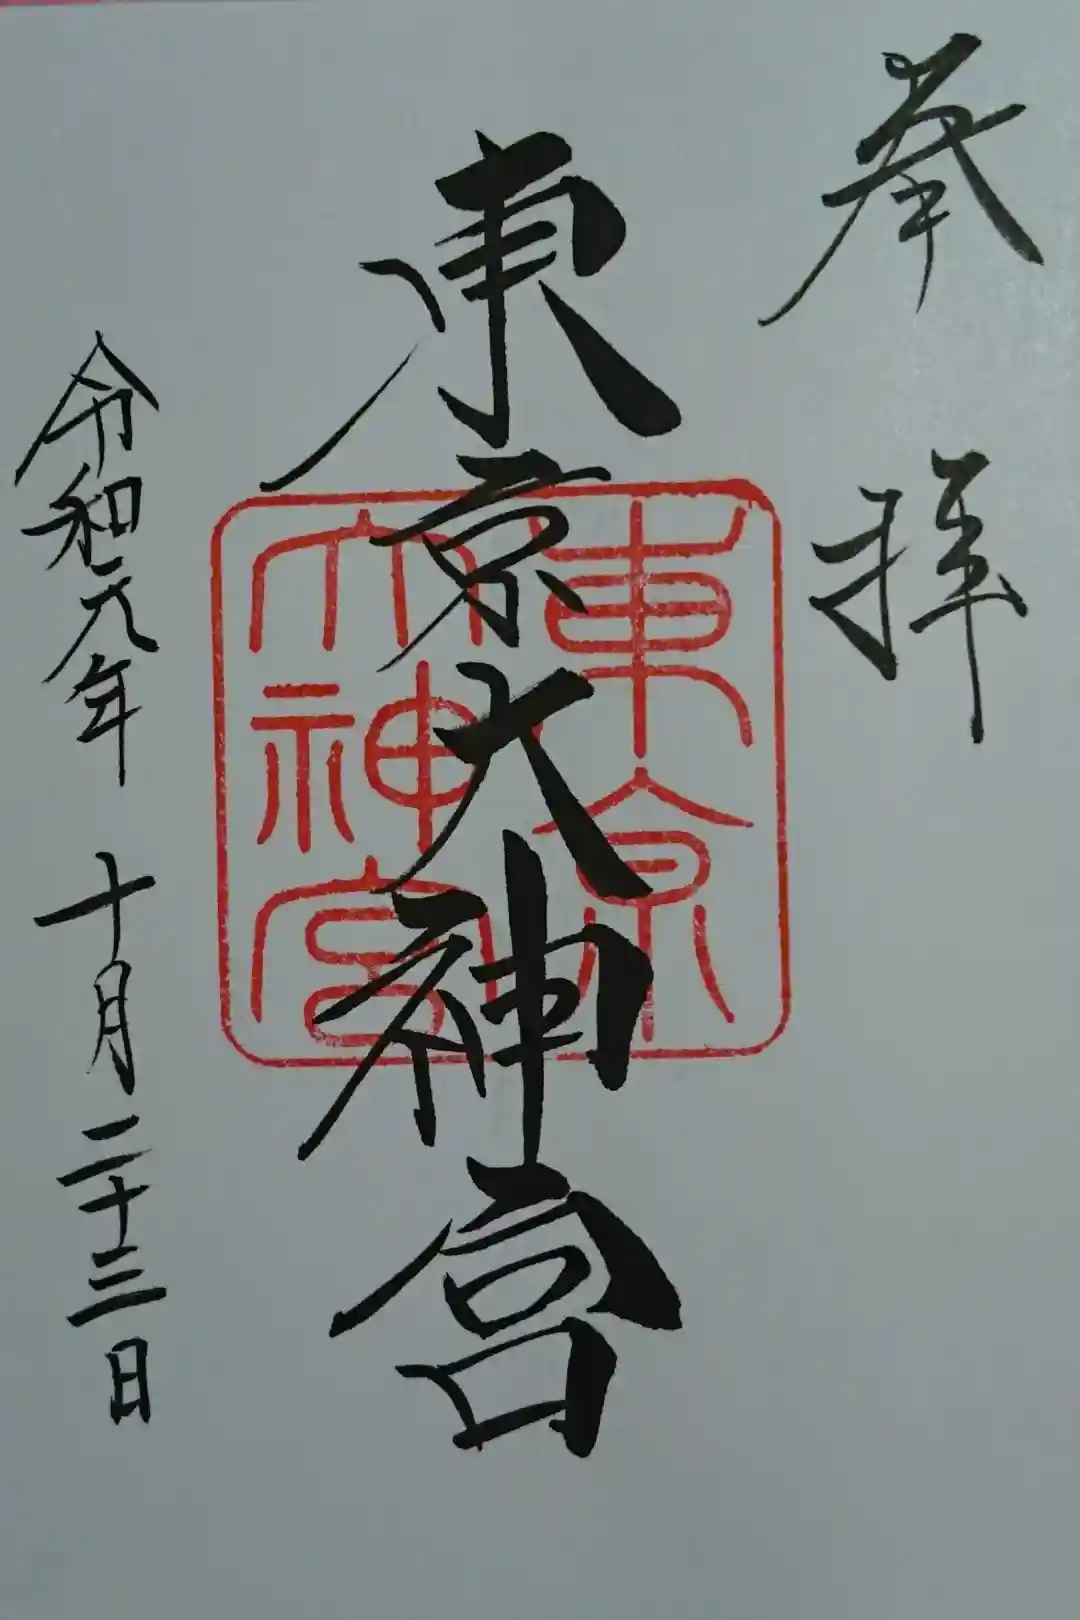 奉拝
東京大神宮
東京
大神宮
令和元年 十月二十三日